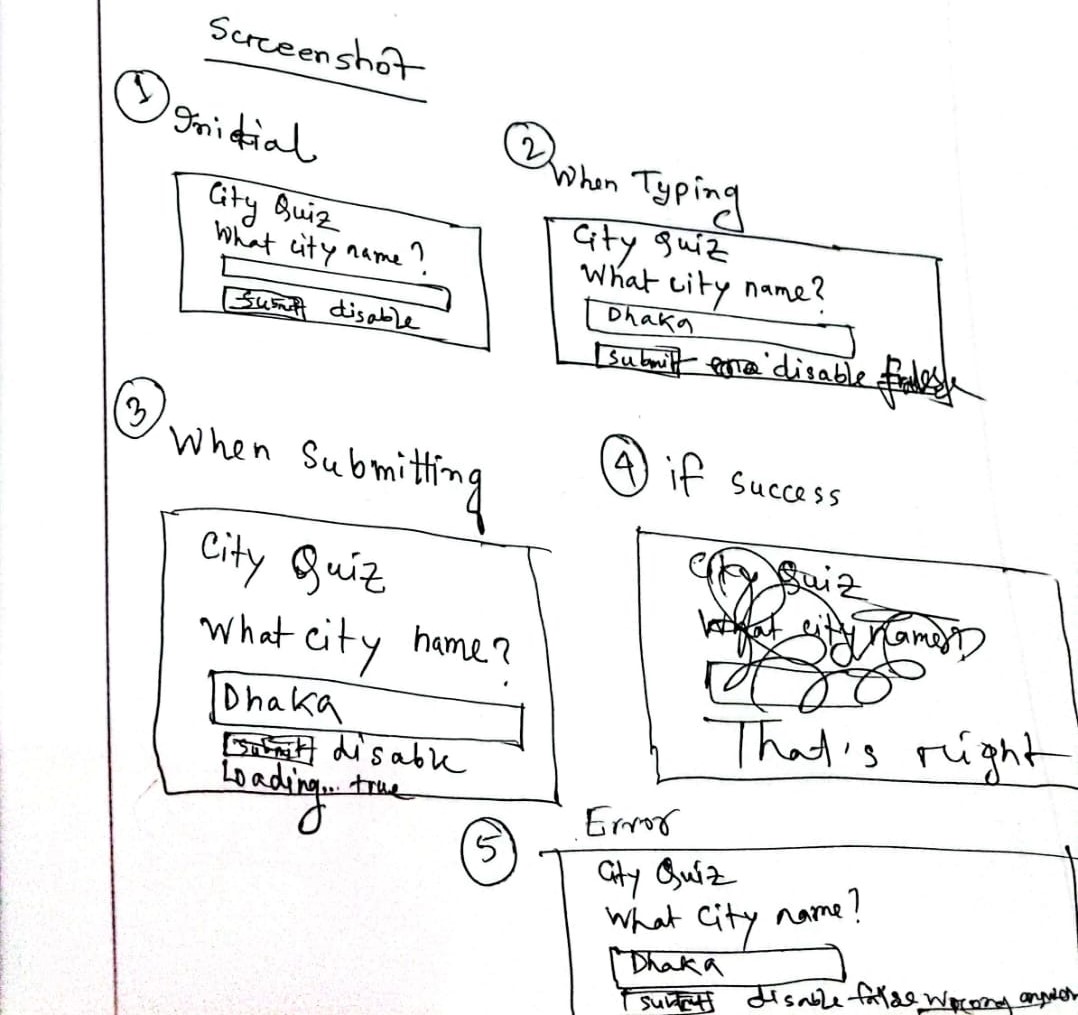 Screenshot
1 Initial
City Quiz
What city name?
Submit disable
2 When Typing
City Quiz
What city name?
Dhaka
Submit disable
3 When Submitting
City Quiz
What city name?
Dhaka
Submit disable
Loading... true
4 if success
City Quiz
What city name?
That's right
5 Error
City Quiz
What City name?
Dhaka
Submit disable false Wrong